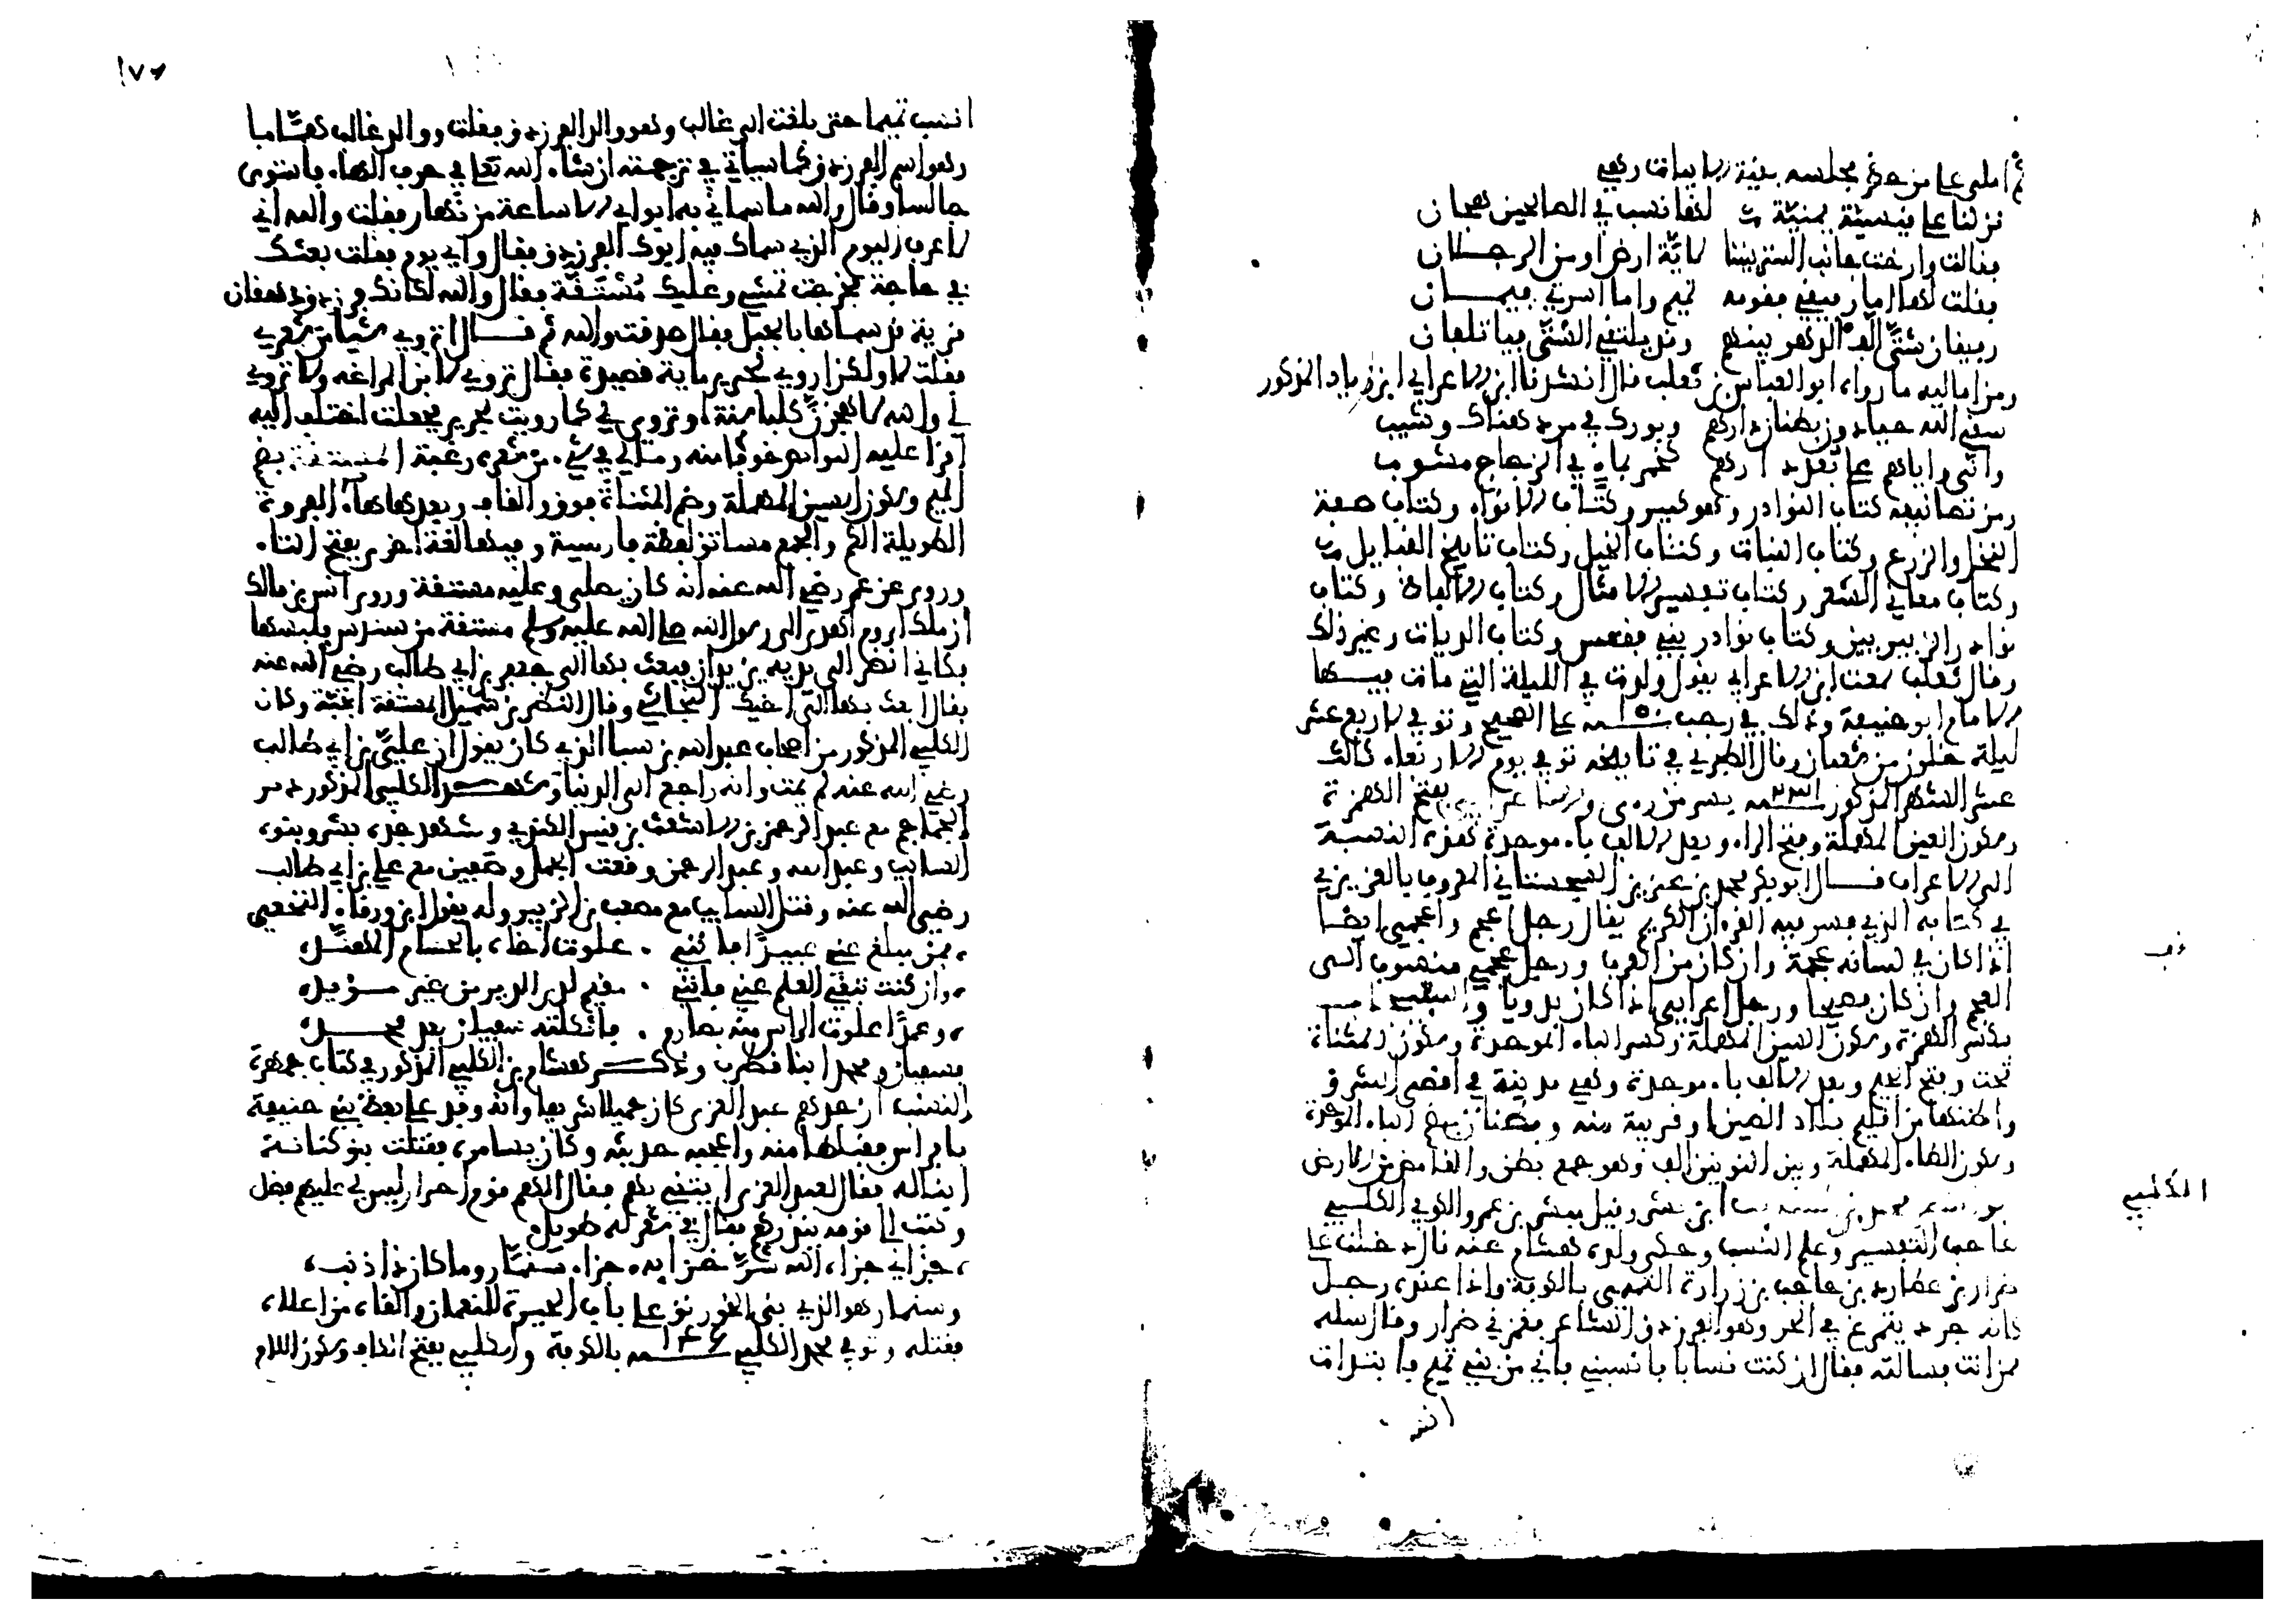 ثم املى على من حضر مجلسه بقية الابيات وهي
نزلنا على قيسية يمنية لها نسب في الصالحين هجان
فقالت وارخت جانب الستر بيننا لاية ارض او من الرجلان
فقلت لها اما رفيقي فقومه تميم واما اسرتي فيمان
رفيقان شتى الف الدهر بيننا وقد يلتقي الشتى فياتلفان
ومن اماليه ما رواه ابو العباس بن ثعلب قال انشدنا ابن الاعرابي ابن زياد المذكور
سقى الله حيا دون بطنان دارهم وبورك في مرد هناك وشيب
واني واياهم على بعد دارهم كخمر بماء في الزجاج مشوب
ومن تصانيفه كتاب النوادر وهو كبير وكتاب الانواء وكتاب صفة
النخل والزرع وكتاب النبات وكتاب الخيل وكتاب تاريخ القبايل
وكتاب معاني الشعر وكتاب تفسير الامثال وكتاب الالفاظ وكتاب
نوادر الزبيريين وكتاب نوادر بني فقعس وكتاب الذباب وغير ذلك
وقال ثعلب سمعت ابن الاعرابي يقول ولدت في الليلة التي مات فيها
الامام ابو حنيفة وذلك في رجب سنة ١٥٠ على الصحيح وتوفي لاربع عشر
ليلة خلون من شعبان وقال الطبري في تاريخه توفي يوم الاربعاء ثالث
عشر الشهر المذكور سنة ٢٣١ بسر من راى والاعرابي بفتح الهمزة
وسكون العين المهملة وفتح الراء وبعد الالف باء موحدة هذه النسبة
الى الاعراب قال ابو بكر محمد بن عزيز السجستاني المعروف بالعزيزي
في كتابه الذي فسر فيه القران الكريم يقال رجل اعجم واعجمي ايضا
اذا كان في لسانه عجمة وان كان من العرب ورجل عجمي منسوب الى
العجم وان كان فصيحا ورجل اعرابي اذا كان بدويا
بكسر الهمزة وسكون السين المهملة وكسر الباء الموحدة وسكون المثناة
تحت وفتح الجيم وبعد الالف باء موحدة وهي مدينة في اقصى الشرق
واظنها من اقليم بلاد الصين او قريبة منه وبطنان بضم الباء الموحدة
وسكون الطاء المهملة وبين النونين الف وهو جمع بطن والغامض من الارض
محمد بن ابن بشر وقيل مبشر بن عمرو الكوفي الكلبي
صاحب التفسير وعلم النسب وحكى ولده هشام عنه قال دخلت على
ضرار بن عطارد بن حاجب بن زرارة التميمي بالكوفة واذا عنده رجل
كانه جرد يتمرغ في الحر وهو الفرزدق الشاعر فغمزني ضرار وقال سله
ممن انت فسالته فقال ان كنت نسابا فانسبني فاني من بني تميم فابتدات
انسب
الكلبي
١٧٦
انسب تميما حتى بلغت الى غالب وهو والد الفرزدق فقلت وولد غالب هماما
وهو اسم الفرزدق كما سياتي في ترجمته ان شاء الله تعالى في حرف الهاء فاستوى
جالسا وقال والله ما سماني به ابواي الا ساعة من نهار فقلت والله اني
لاعرف اليوم الذي سماك فيه ابوك الفرزدق فقال واي يوم فقلت بعثك
في حاجة فخرجت تمشي وعليك مستقة فقال والله لكانك فرزدق دهقان
قرية قد سماها بالجبل فقال صدقت والله ثم قال اتروي شيئا من شعري
فقلت لا ولكن اروي لجرير ماية قصيدة فقال تروي لابن المراغه ولا تروي
لي والله لاهجون كلبا سنة او تروي لي كما رويت لجرير فجعلت اختلف اليه
اقرا عليه النوايض خوفا منه ومالي في شيء من شعره رغبة المستقة بضم
الميم وسكون السين المهملة وضم المثناة فوق والقاف وبعدها هاء الفروة
الطويلة الكم والجمع مساتق لفظة فارسية وفيها لغة اخرى بفتح التاء
وروي عن عمر رضي الله عنه انه كان يصلي وعليه مستقة وروى انس بن مالك
ان ملك الروم اهدى الى رسول الله صلى الله عليه وسلم مستقة من سندس فلبسها
فكاني انظر الى يديه ثم بعث بها الى جعفر بن ابي طالب رضي الله عنه
فقال ابعث بها الى اخيك النجاشي وقال النضر بن شميل المستقة الجبة وكان
الكلبي المذكور من اصحاب عبد الله بن سبا الذي كان يقول ان علي بن ابي طالب
رضي الله عنه لم يمت وانه راجع الى الدنيا وشهد الكلبي المذكور دير
الجماجم مع عبد الرحمن بن الاشعث بن قيس الكندي وشهد جده بشر وبنوه
السايب وعبيد الله وعبد الرحمن وقعت الجمل وصفين مع علي بن ابي طالب
رضي الله عنه وقتل السايب مع مصعب بن الزبير وله يقول ابن ورقاء النخعي
، فمن مبلغ عني عبيدا بانني . علوت اخاه بالحسام المهند،
، وان كنت تبغي العلم عني فانني . مقيم لدى الديرين غير موسد،
، وعمدا علوت الراس منه بصارم . فاثكلته سفيان بعد محمد،
فسفيان ومحمد ابنا السايب وذكر هشام بن الكلبي المذكور في كتاب جمهرة
النسب ان جدهم عبد العزى كان جميلا شريفا وانه وفد على بعض بني جفنة
بافراس فقبلها منه واعجبه حديثه وكان يسامره فقتلت بنو كنانة
ابنا له فقال لعبد العزى ايتني بهم فقال انهم قوم احرار ليس لي عليهم فضل
وكتب الى قومه ينذرهم فقال في شعر له طويل
، جزاني جزاه الله شر جزايه جزاء سنمار وما كان ذا ذنب،
وسنمار هو الذي بنى الخورنق على باب الحيرة للنعمان والقاه من اعلاه
فقتله وتوفي محمد الكلبي سنة ١٤٦ بالكوفة والكلبي بفتح الكاف وسكون اللام